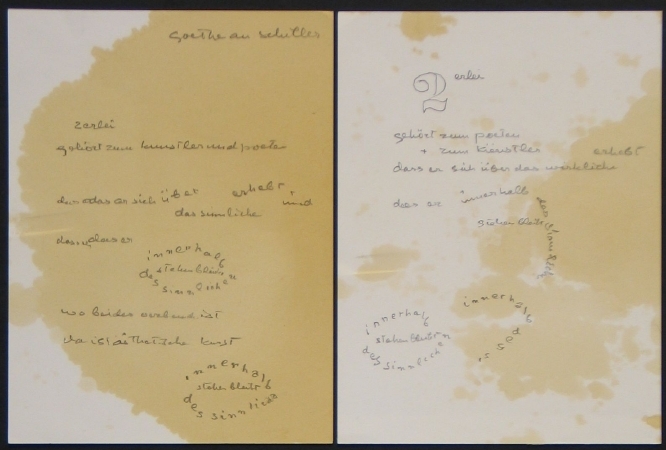 goethe an schiller
2erlei
gehört zum kunstler und poete
das das er sich über erhebt und
das sinnliche
das er
innerhalb
stehen bleibt
des sinnlichen
wo beides verbund ist
da ist ästhetische kunst
innerhalb
stehen bleibt
des sinnliche
2 erlei
gehört zum poeten
+ zum künstler
erhebt
dass er sich über das wirkliche
das er innerhalb
stehen bleibt
des sinnlich
innerhalb
stehen bleibt
des sinnliche
innerhalb
des